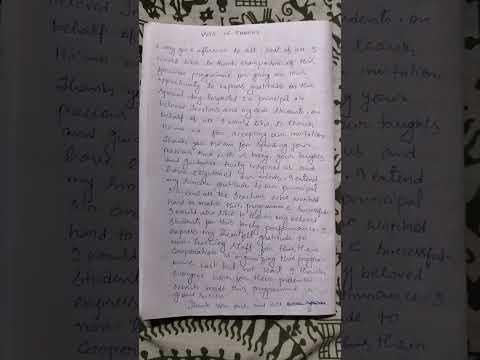 VOTE OF THANKS
A very good afternoon to all. First of all I
would like to thank the organisers of this
programme for giving me this
opportunity to express gratitude on this
special day Respected Sir principal sir
beloved teachers and my dear students. on
behalf of us I would like to thank
for accepting our invitation
Thank you Mam for spending your
precious time with us being your thoughts
and guidance truly inspired us and
have enlightened I extend
my sincere gratitude to our principal
sir and all the teachers who worked
hard to make this programme successful.
I would also like to thank my beloved
students for this lovely performance. I
express my heartfelt gratitude to
non-Teaching staff for this them
cooperation in organizing this program
Last but not least I thank
everyone whom
made this programme a
grand success.
Thank you one and all